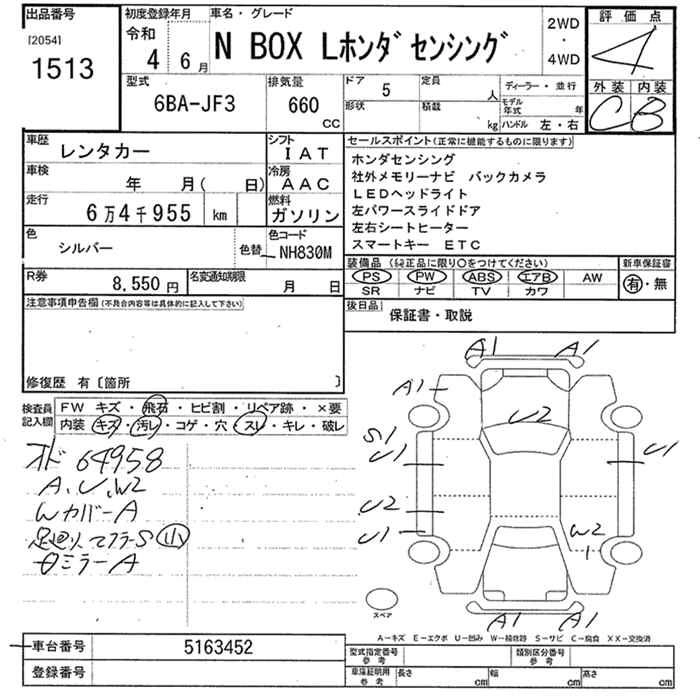 出品番号
[2054]
1513
初度登録年月
令和
4 6月
車名・グレード
N BOX Lホンダセンシング
2WD
・
4WD
評価点
4
外装 内装
C B
型式
6BA-JF3
排気量
660
cc
ドア
5
定員
人
形状
積載
kg
ディーラー・並行
モデル年式 年
ハンドル 左・右
車歴
レンタカー
シフト
IAT
車検
年 月( 日)
冷房
AAC
走行
6万4千955 km
燃料
ガソリン
色
シルバー
色替
色コード
NH830M
R券
8,550円
名変通知期限
月 日
セールスポイント(正常に機能するものに限ります)
ホンダセンシング
社外メモリーナビ バックカメラ
LEDヘッドライト
左パワースライドドア
左右シートヒーター
スマートキー ETC
装備品 (純正品に限り○をつけてください)
新車保証書
PS PW ABS エアB AW
SR ナビ TV カワ
有・無
後日品
保証書・取説
注意事項申告欄(不具合内容等は具体的に記入して下さい)
修復歴 有〔箇所 〕
検査員記入欄
FW キズ・飛石・ヒビ割・リペア跡・×要
内装・キズ・汚レ・コゲ・穴・スレ・キレ・破レ
オド 64958
A、U、W2
WカバーA
足廻リ マフラーS 小
ミラーA
A1 A1
A1
U2
S1
U1
U1
U2
U1
W2
1
A1 A1
スペア
A-キズ E-エクボ U-凹み W-補修跡 S-サビ C-腐食 XX-交換済
車台番号
5163452
登録番号
型式指定番号
参考
類別区分番号
参考
車庫証明用
参考
長さ cm
幅 cm
高さ cm